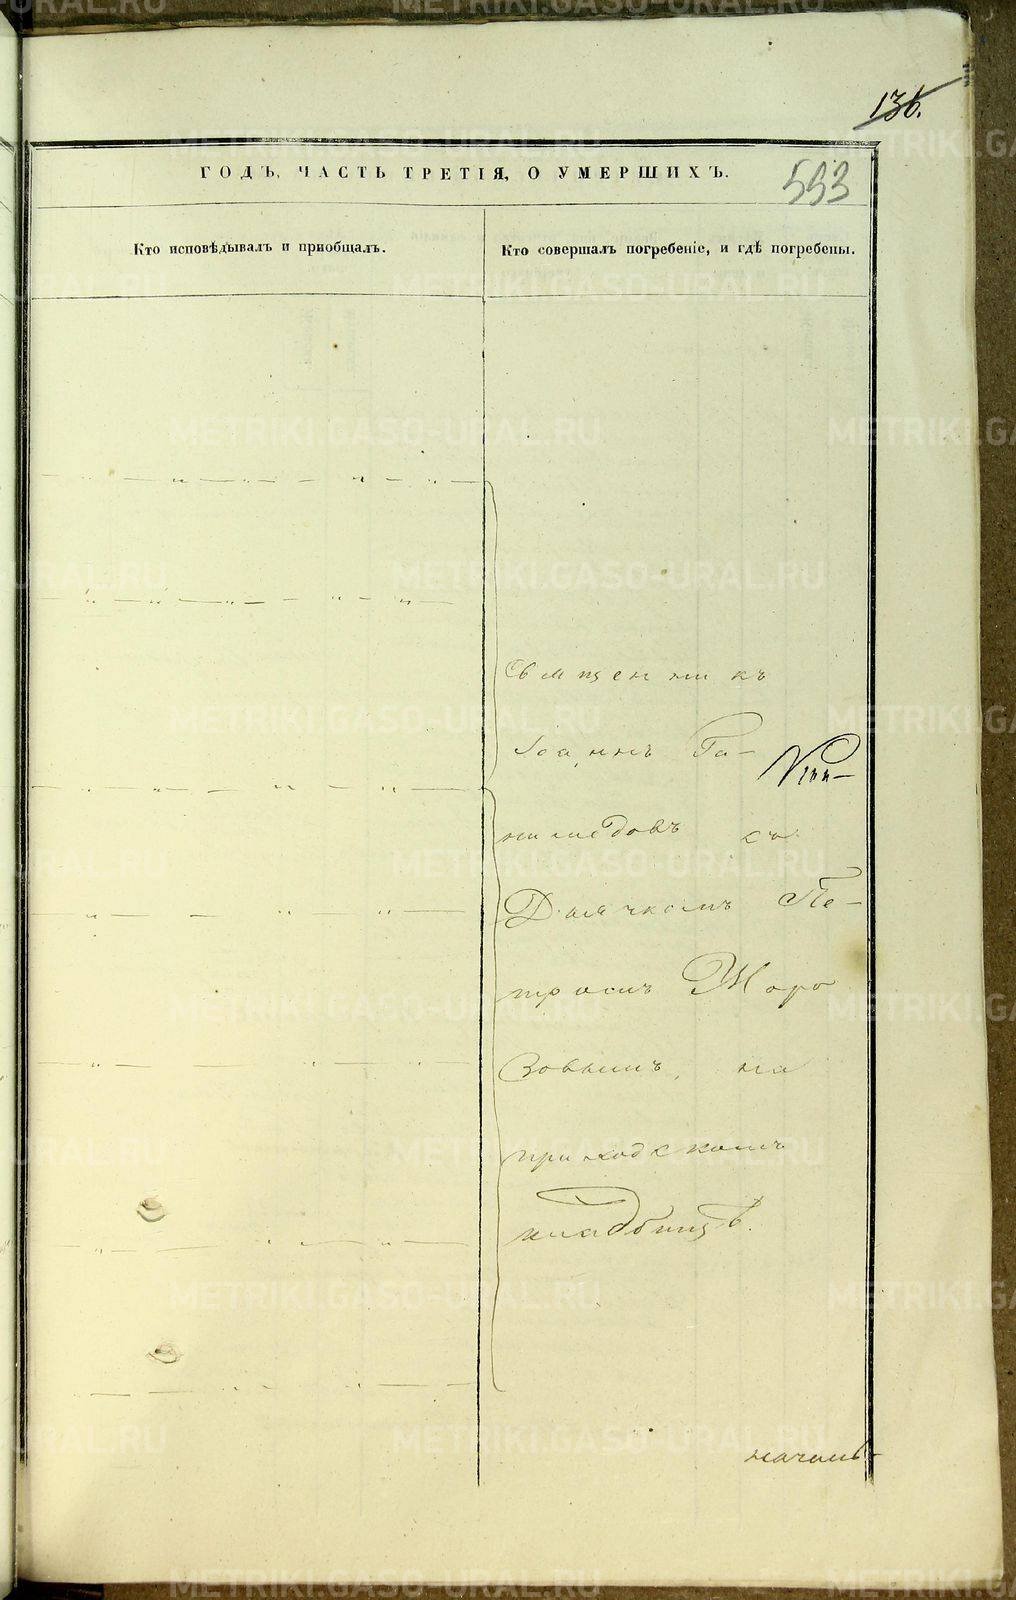 136.
593
ГОДЪ, ЧАСТЬ ТРЕТІЯ, О УМЕРШИХЪ.
Кто исповѣдывалъ и пріобщалъ.
Кто совершалъ погребеніе, и гдѣ погребены.
Священникъ
Іоаннъ Га-
съ
Дьячкомъ Пе-
тромъ Моро
зовымъ, на
приходскомъ
кладбищѣ.
METRIKI.GASO-URAL.RU